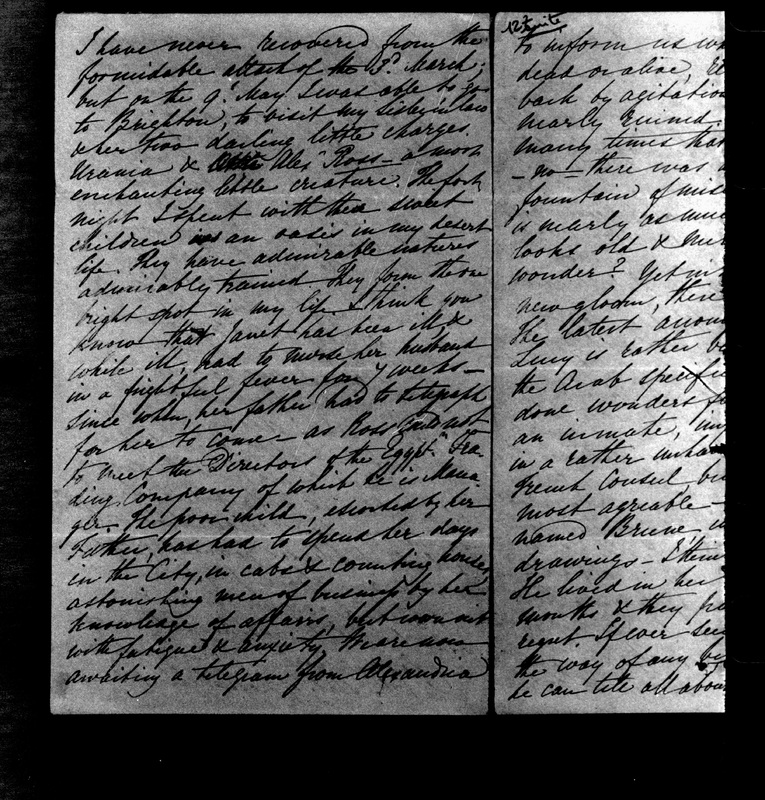 I have never recovered from the
formidable attack of the 3d. March;
but on the 9th. May I was able to go
to Brighton, to visit my Sister in law
& her two darling little charges.
Urania & Alexr. Ross – a most
enchanting little creature. The fort
night I spent with these sweet
children was an oasis in my desert
life. They have admirable natures
admirably trained. They form the one
bright spot in my life. I think you
know that Janet has been ill, &
while ill, had to nurse her husband
in a frightful fever for 7 weeks –
since when, her father had to telegraph
for her to come – as Ross
to meet the Directors of the Egyptn. Tra-
ding Company of which he is Mana-
ger. The poor child, escorted by her
Father, has had to spend her days
in the City, in cabs & counting houses,
astonishing men of business by her
knowledge of affairs, but worn out
with fatigue & anxiety. We are now
awaiting a telegram from Alexandria
12
to inform us
dead or alive,
back by agitation
nearly ruined.
many times that
– no – there was
fountain of
is nearly as much
looks old &
wonder? Yet
new gloom, there
The latest
Lucy is rather
the Arab
done wonders
an inmate,
in a rather
French Consul,
most agreable –
named Brune,
drawings – I think
He lived in her
months & they
regret. If ever
the way of any
he can tell all about